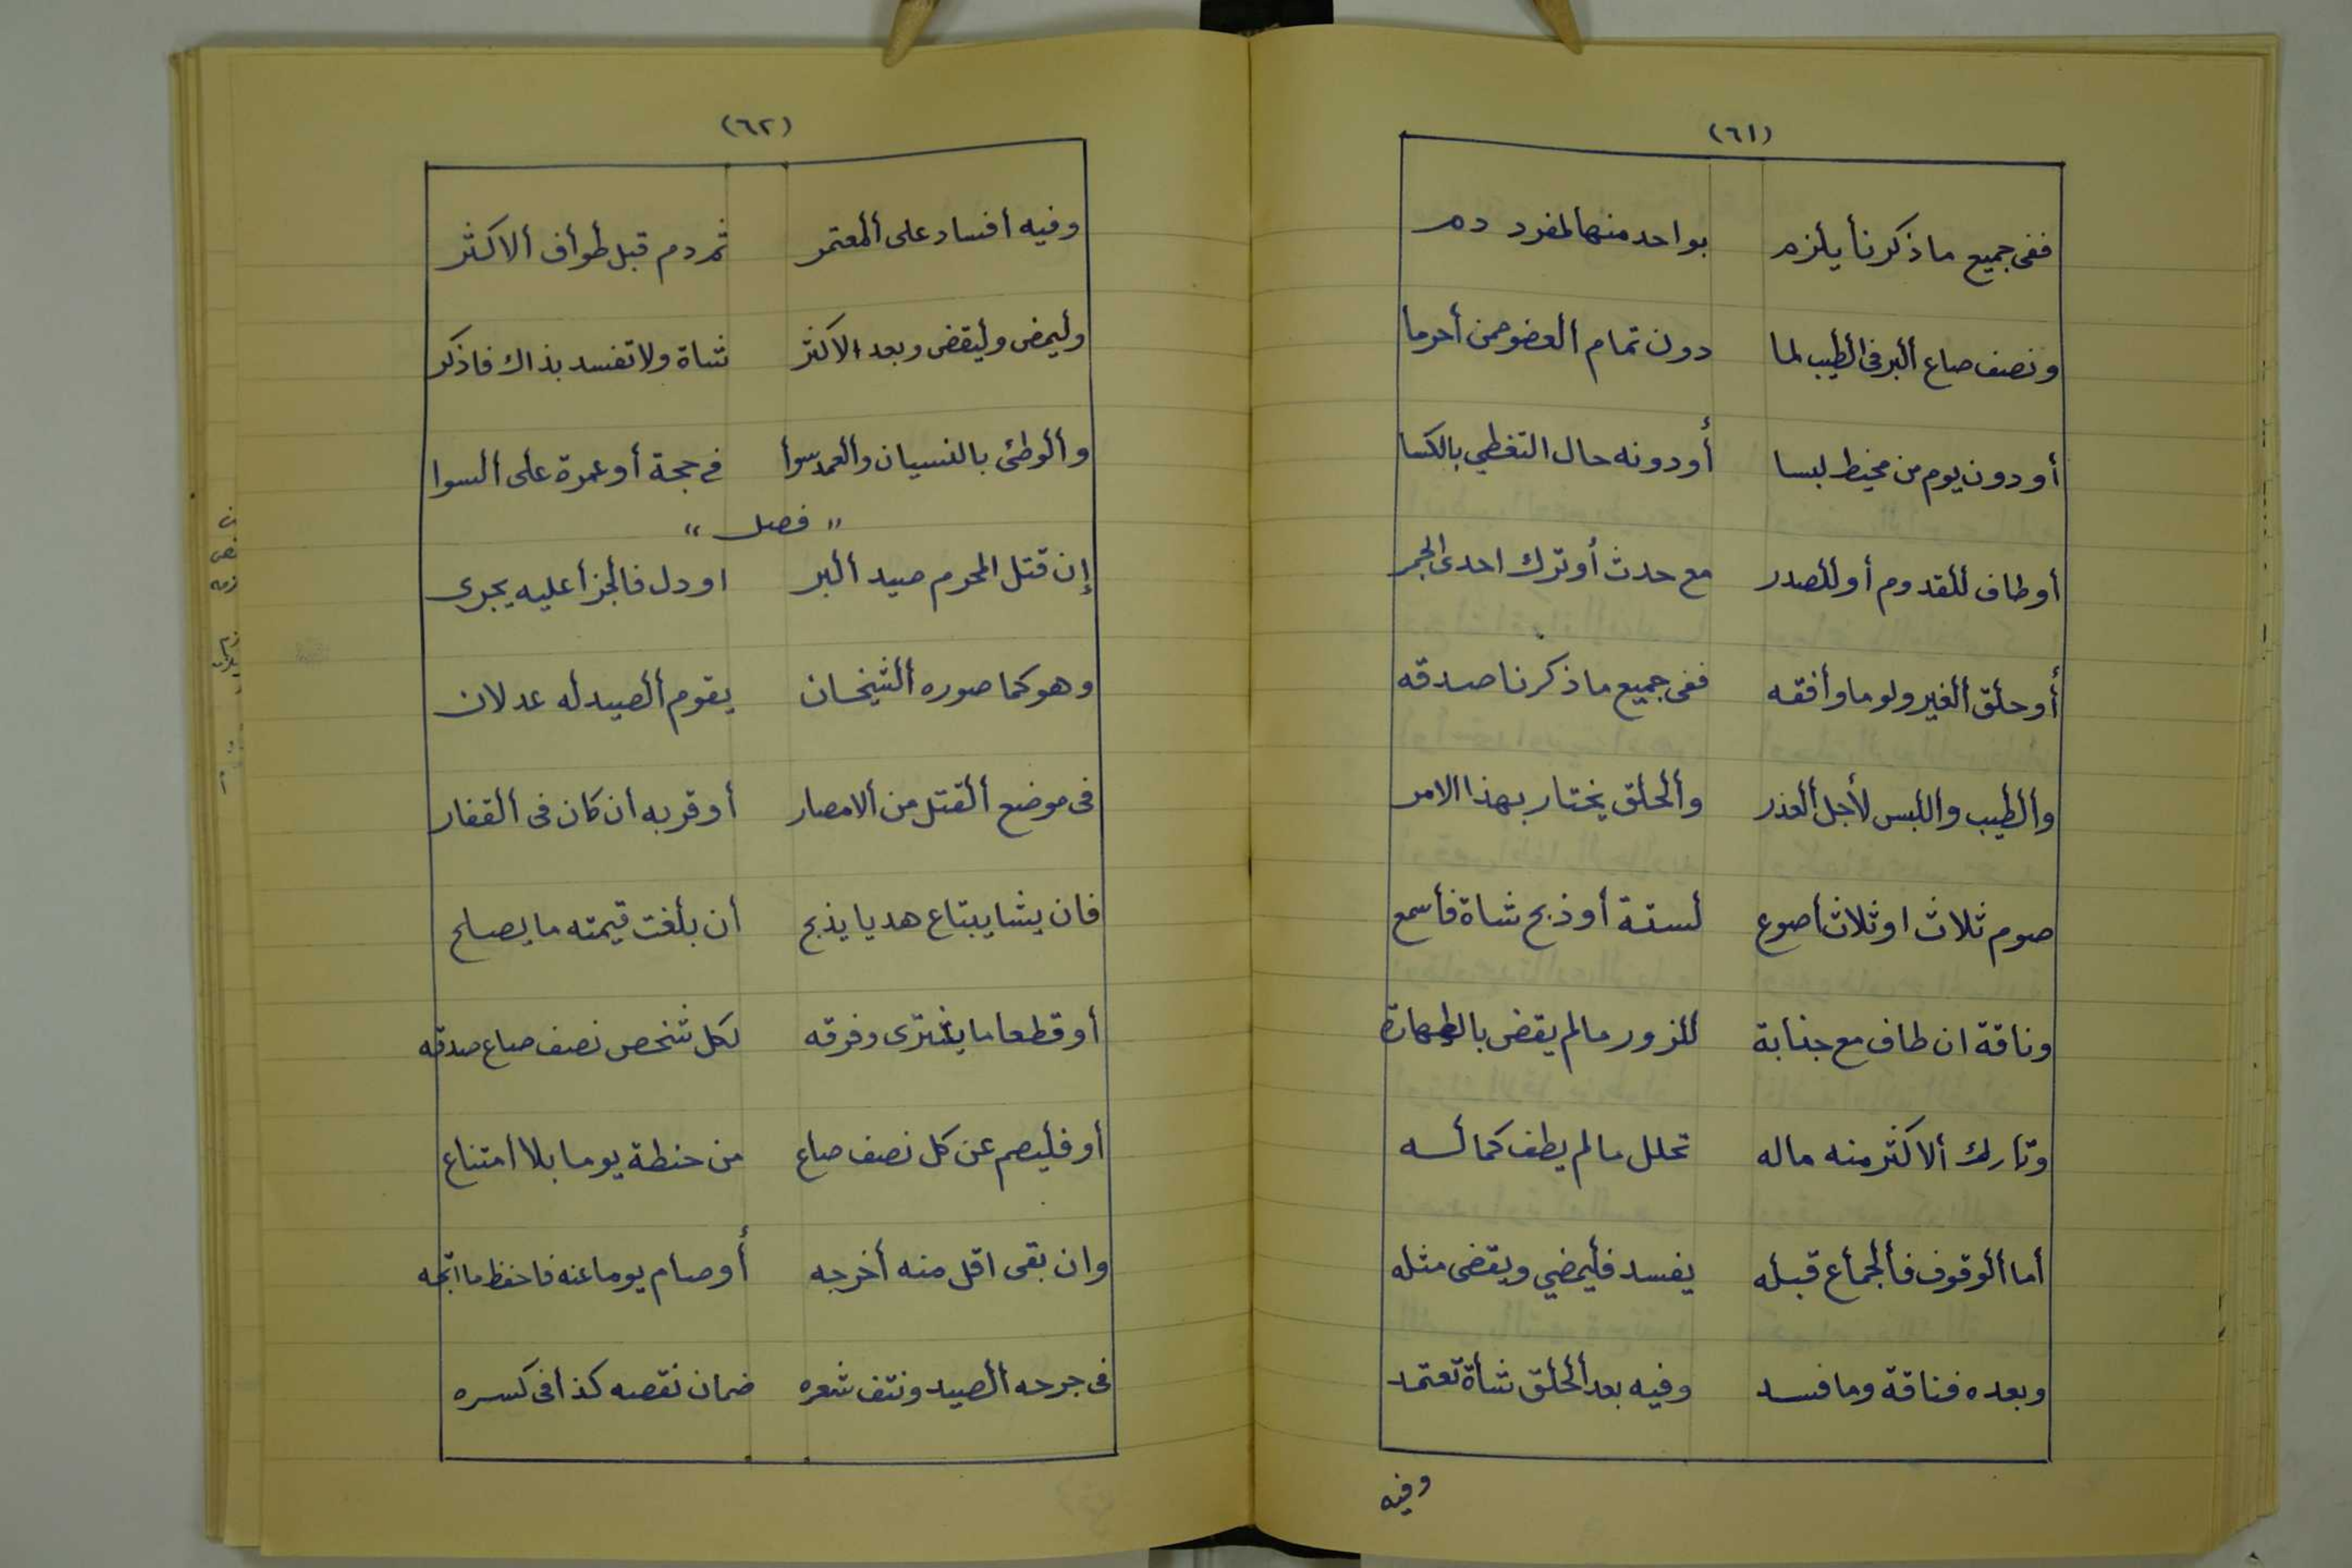 (٦١)
ففى جميع ما ذكرنا يلزم بواحد منها لمفرد دم
ونصف صاع البر فى الطيب لما دون تمام العضو ممن أحرما
أو دون يوم من مخيط لبسا أو دونه حال التغطي بالكسا
أو طاف للقدوم أو للصدر مع حدث أو ترك احدى الجمر
أو حلق الغير ولو ما وافقه ففى جميع ما ذكرنا صدقه
والطيب واللبس لأجل العذر والحلق يختار بهذا الامر
صوم ثلاث او ثلاث أصوع لستة أو ذبح شاة فأسمع
وناقة ان طاف مع جنابة للزور ما لم يقض بالطهارة
وتارك الاكثر منه ماله تحلل ما لم يطف كماله
أما الوقوف فالجماع قبله يفسد فليمضي ويقضى مثله
وبعده فناقة وما فسد وفيه بعد الحلق شاة تعتمد
وفيه
(٦٢)
وفيه أفساد على المعتمر ثم دم قبل طواف الاكثر
وليمض وليقض وبعد الاكثر شاة ولا تفسد بذاك فاذكر
والوطئ بالنسيان والعمد سوا في حجة أو عمرة على السوا
" فصل "
إن قتل المحرم صيد البر او دل فالجزا عليه يجرى
وهو كما صوره الشيخان يقوم الصيد له عدلان
فى موضع القتل من الامصار أو قربه أن كان فى القفار
فان يشا يبتاع هديا يذبح أن بلغت قيمته ما يصلح
أو قطعاما يشترى وفرقه لكل شخص نصف صاع صدقه
أو فليصم عن كل نصف صاع من حنطة يوما بلا أمتناع
وان بقى اقل منه أخرجه أو صام يوما عنه فاحفظ ما اتجه
فى جرحه الصيد ونتف شعره ضمان نقصه كذا فى كسره